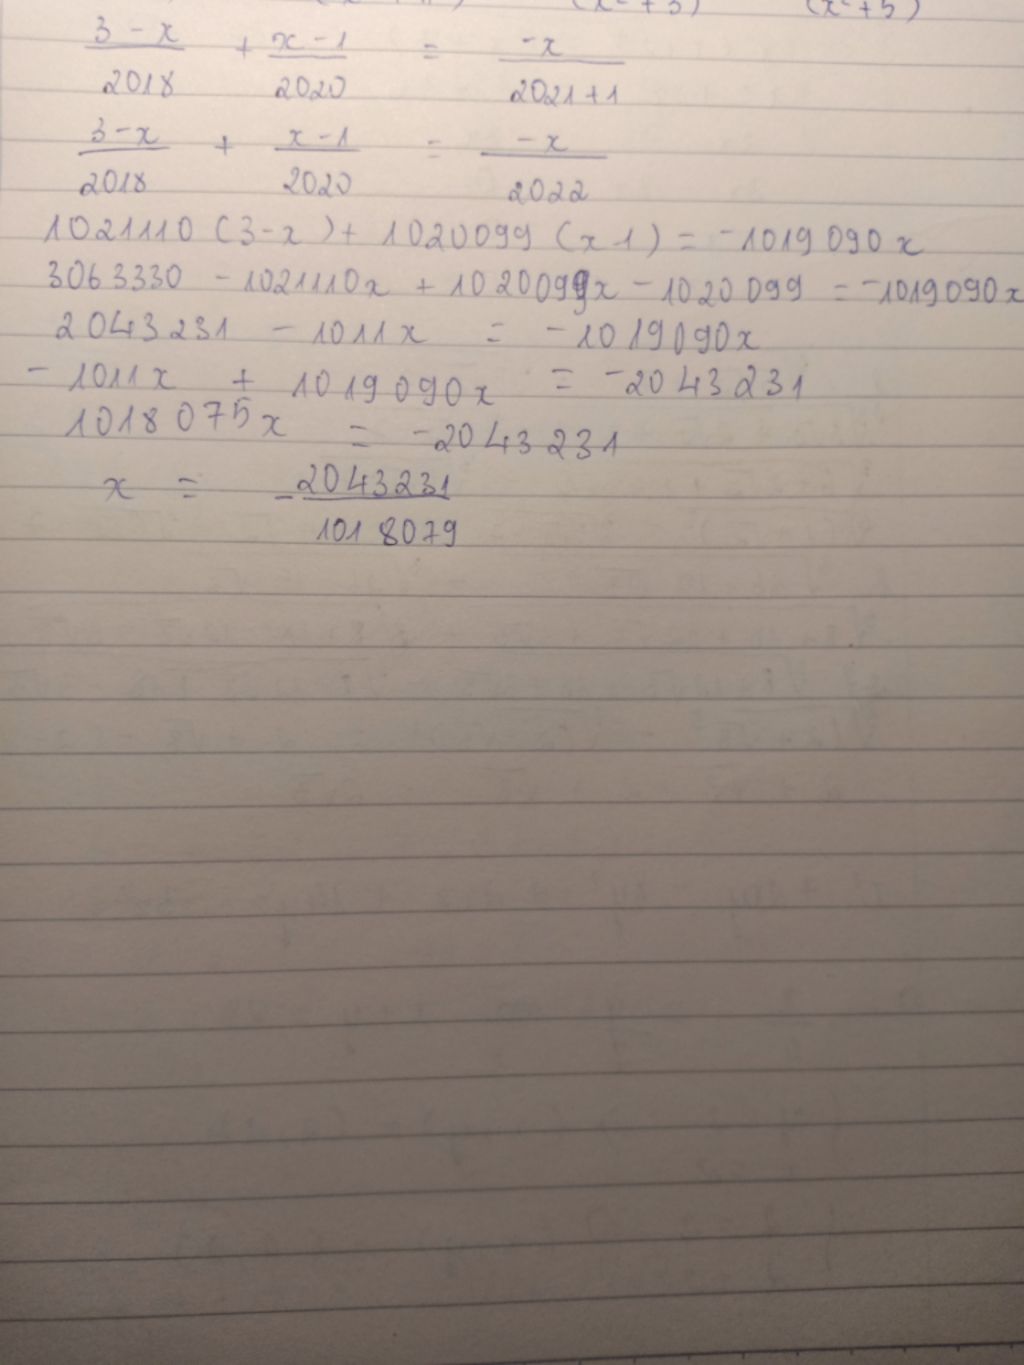 (x²+3) (x²+5)
3-x/2018 + x-1/2020 = -x/2021+1
3-x/2018 + x-1/2020 = -x/2022
1021110(3-x)+1020099(x-1)=-1019090x
3063330-1021110x+1020099x-1020099=-1019090x
2043231-1011x=-1019090x
-1011x+1019090x=-2043231
1018075x=-2043231
x=-2043231/1018079